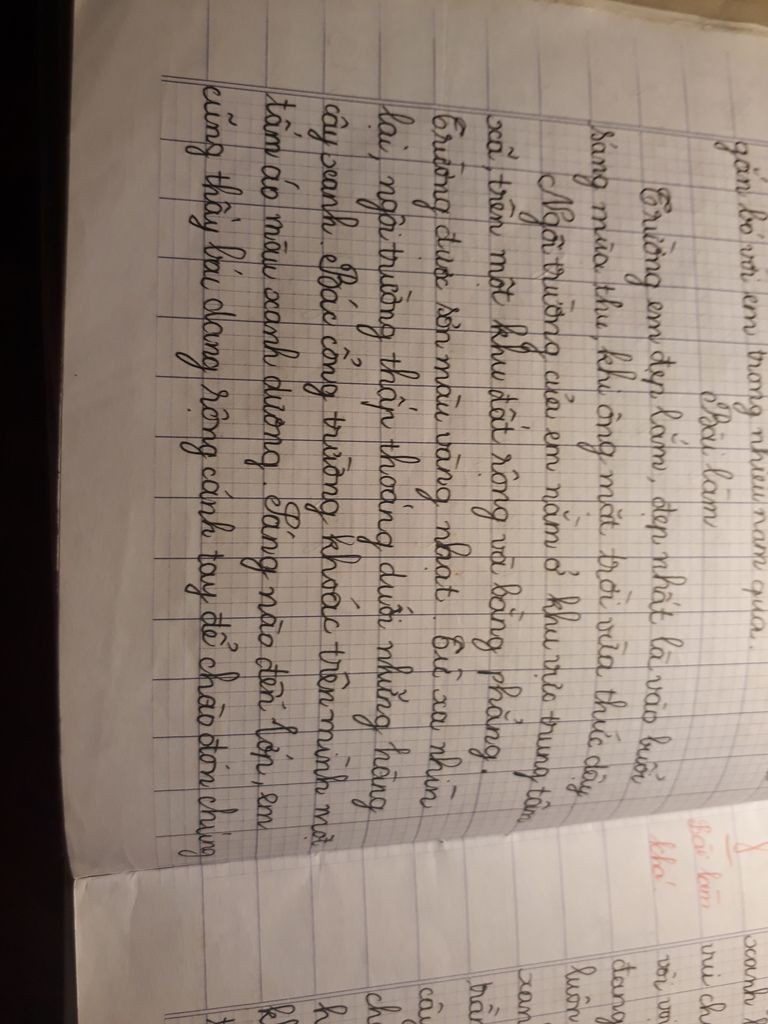 gắn bó với em trong nhiều năm qua.
Bài làm
Trường em đẹp lắm, đẹp nhất là vào buổi
sáng mùa thu, khi ông mặt trời vừa thức dậy
Ngôi trường của em nằm ở khu vực trung tâm
xã, trên một khu đất rộng và bằng phẳng.
Trường được sơn màu vàng nhạt. Từ xa nhìn
lại, ngôi trường thấp thoáng dưới những hàng
cây xanh. Bác cổng trường khoác trên mình một
tấm áo màu xanh dương. Sáng nào đến lớp, em
cũng thấy bác dang rộng cánh tay để chào đón chúng
Bài làm
khá.
xanh
vui ch
vời vợ
đang
luôn
xan
trần
cây
ch
h
k
t